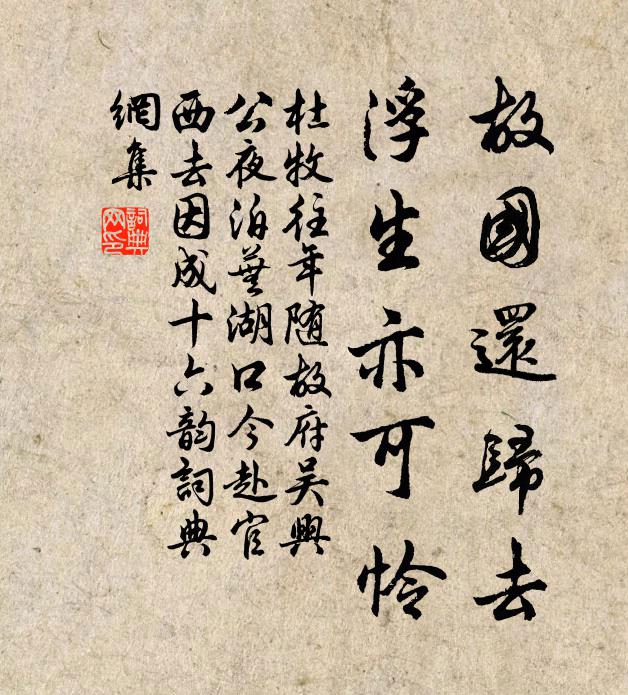 故國還歸去
浮生亦可怜
杜牧往年随故府吴興
公夜泊蕪湖口今赴官
西去因成十六韵詞典
網集
詞典
网印